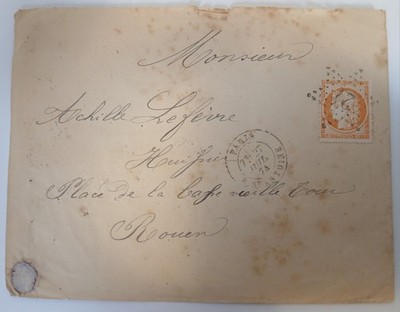 Monsieur
Achille Lefèvre
Huissier
Place de la Basse vieille Tour
Rouen
PARIS
JUIL
74